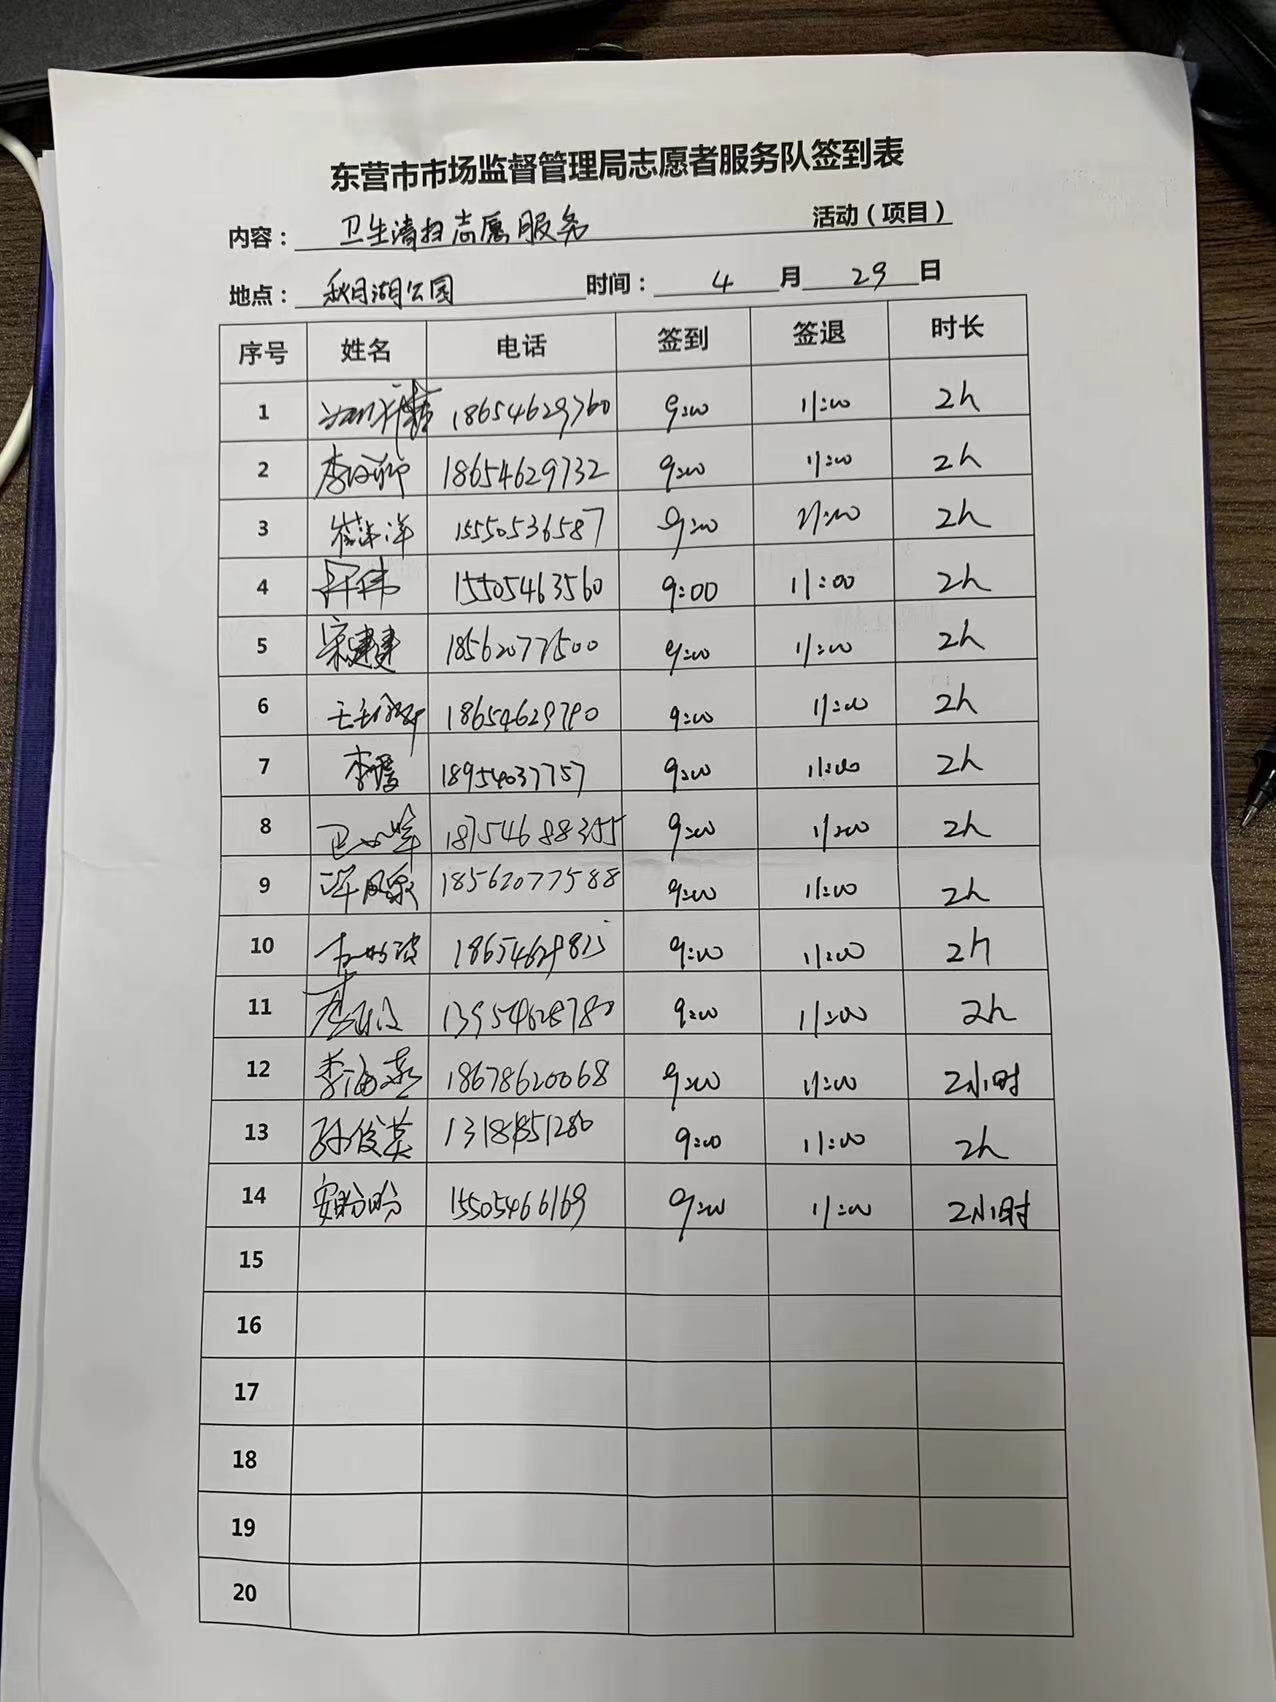 东营市市场监督管理局志愿者服务队签到表
内容： 卫生清扫志愿服务 活动（项目）
地点： 秋月湖公园 时间： 4 月 29 日
序号 姓名 电话 签到 签退 时长
1 18654629760 9:00 11:00 2h
2 18654629732 9:00 11:00 2h
3 崔洋洋 15550536587 9:00 11:00 2h
4 15505463560 9:00 11:00 2h
5 宋建建 18562077500 9:00 11:00 2h
6 9:00 11:00 2h
7 18954037757 9:00 11:00 2h
8 18754688355 9:00 11:00 2h
9 18562077588 9:00 11:00 2h
10 9:00 11:00 2h
11 13954628780 9:00 11:00 2h
12 李海燕 18678620068 9:00 11:00 2小时
13 孙俊英 9:00 11:00 2h
14 安盼盼 15505466169 9:00 11:00 2小时
15
16
17
18
19
20